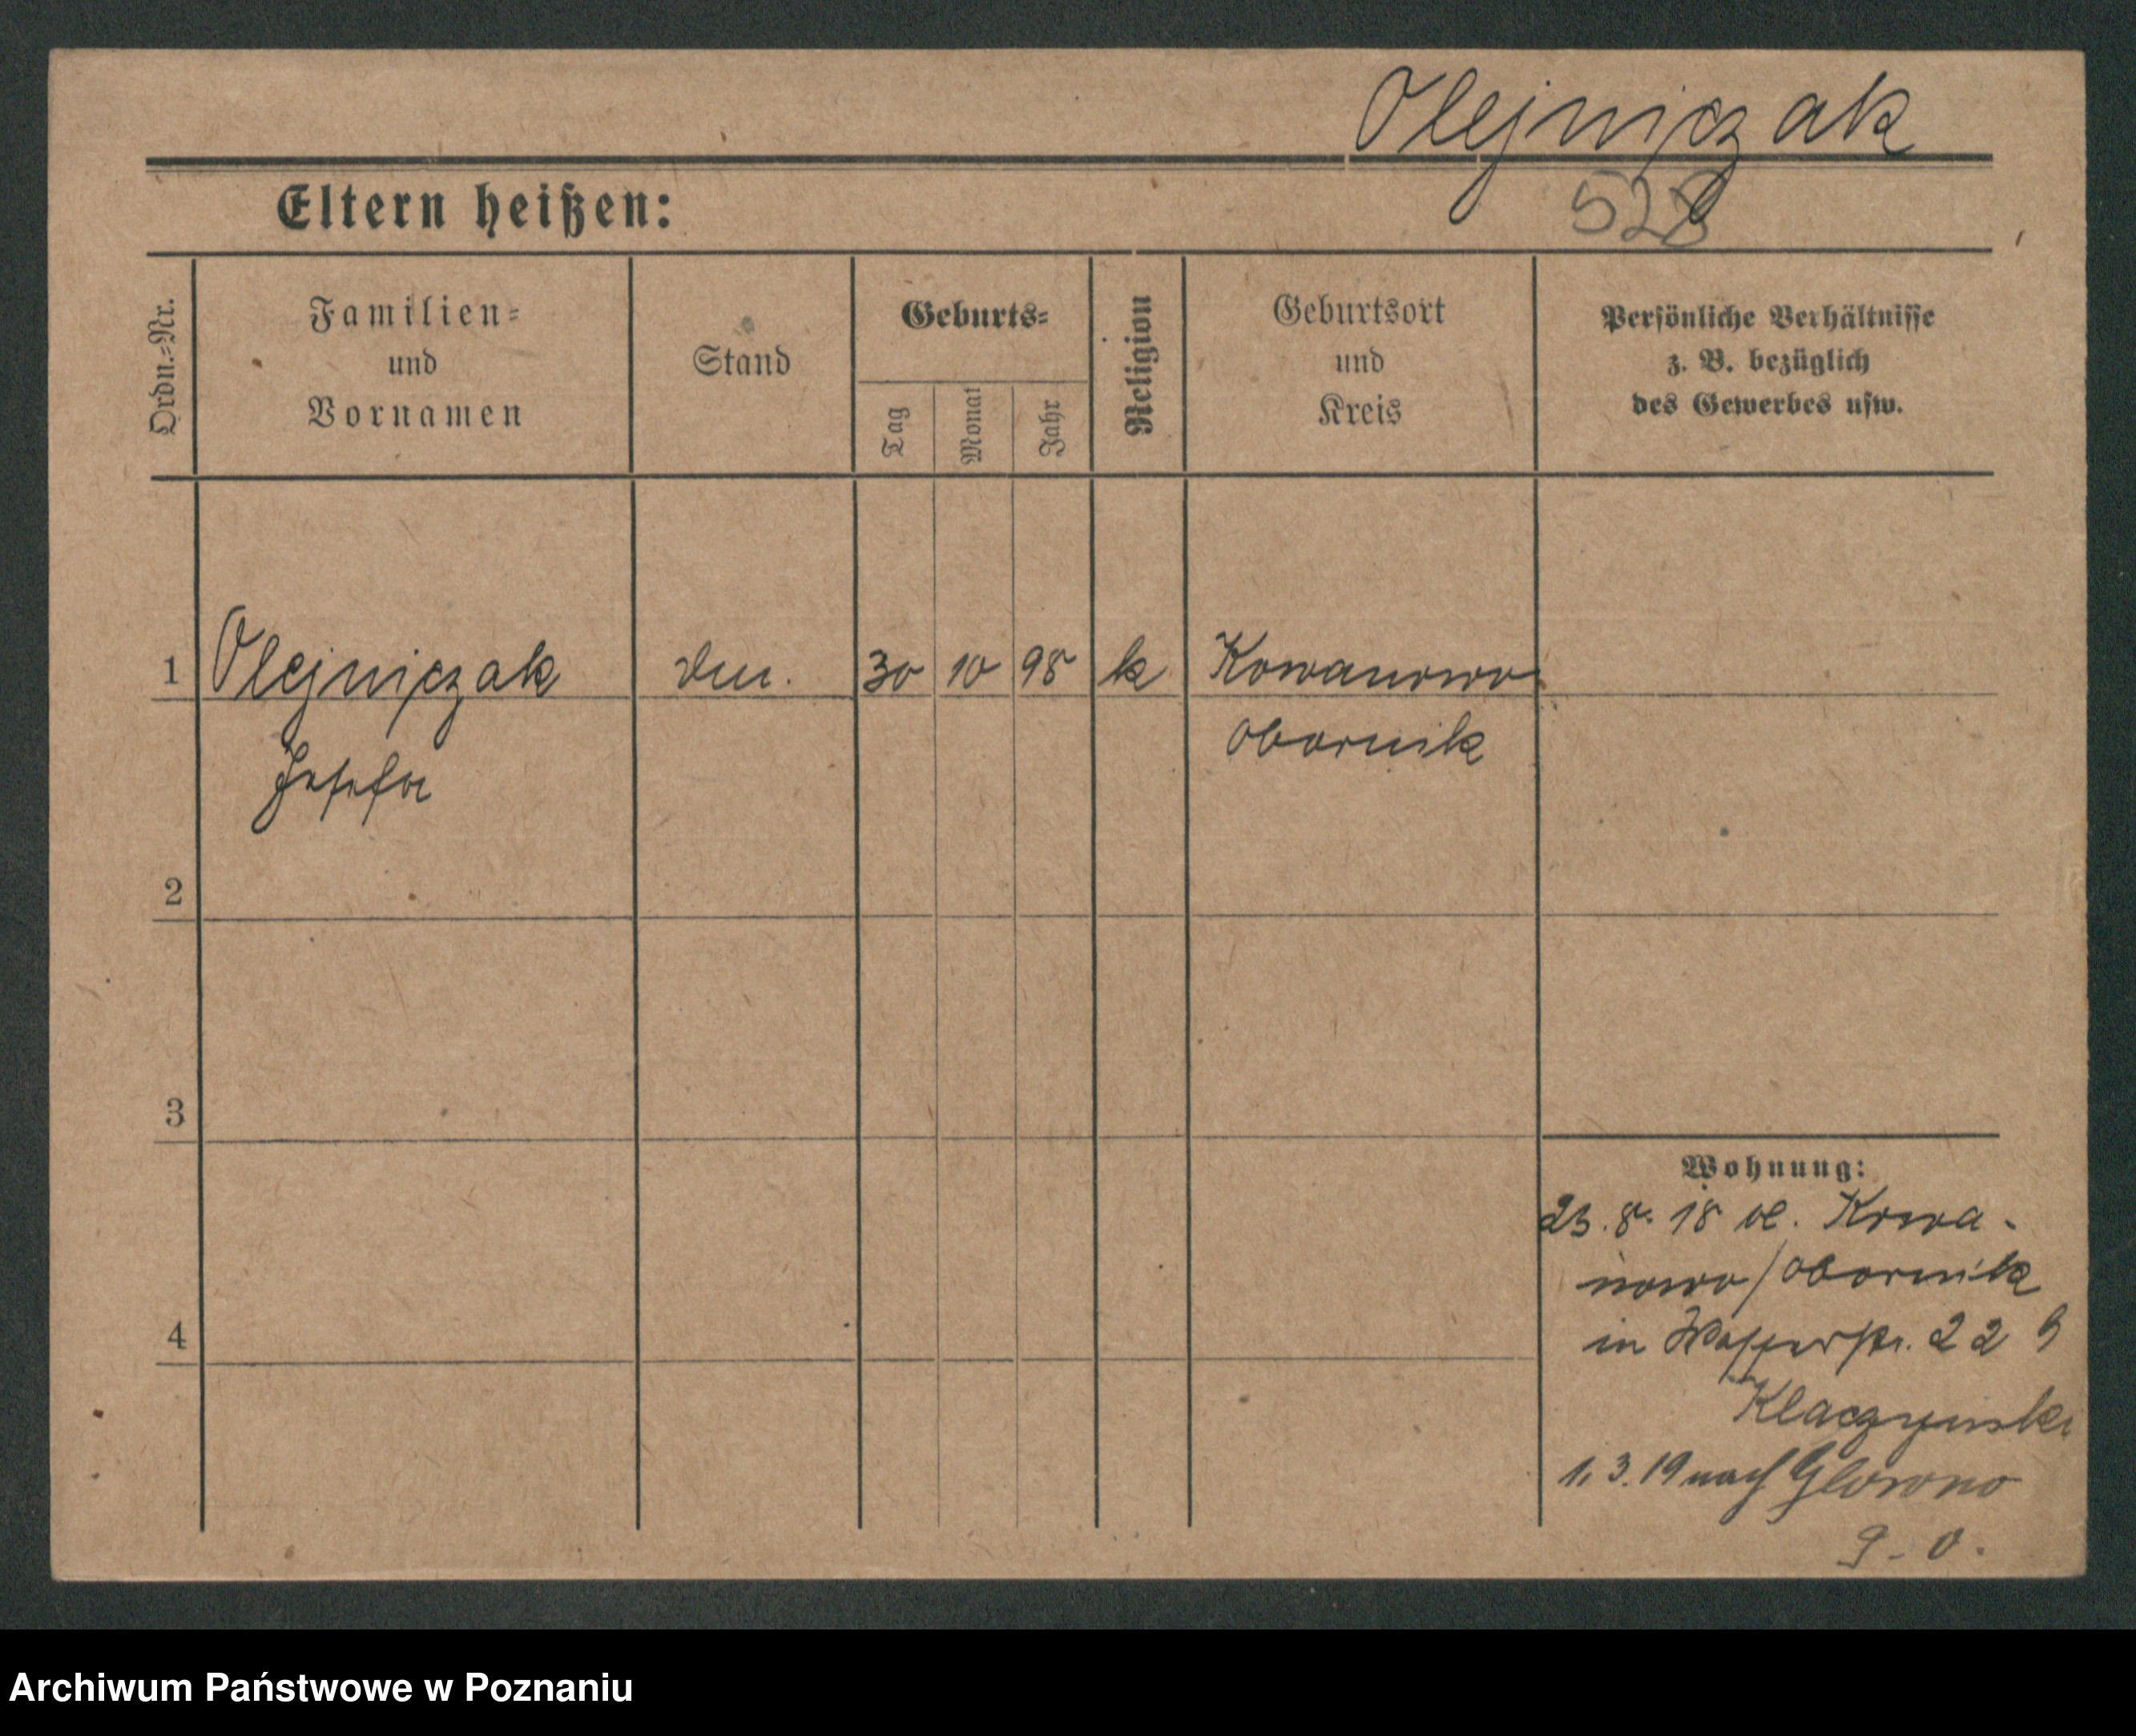 Olejniczak
528
Eltern heißen:
Ordn.-Nr.
Familien-
und
Vornamen
Stand
Geburts-
Tag
Monat
Jahr
Religion
Geburtsort
und
Kreis
Persönliche Verhältnisse
z. B. bezüglich
des Gewerbes usw.
1 Olejniczak 30 10 98 k Kowanowo
Josefa Obornik
2
3
4
Wohnung:
23. 8. 18 Kowa-
nowo/Obornik
in Wasserstr. 22
Klaczynski
1. 3. 19 nach
Archiwum Państwowe w Poznaniu